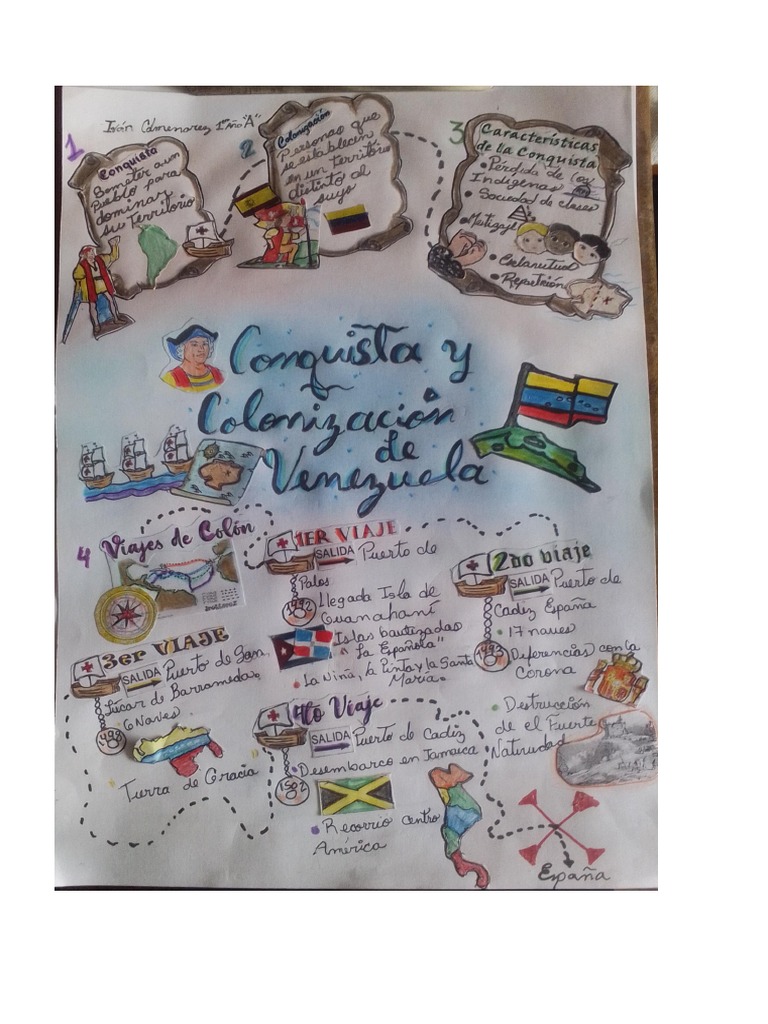 Iván Colmenarez 1er Año "A"
1
Conquista
Someter a un
Pueblo para
dominar
su territorio
2
Colonización
Personas que
se establecen
en un territorio
distinto al
suyo
3
Características
de la Conquista
• Pérdida de los
Indígenas
• Sociedad de clases
Mestizaje
• Esclavitud
• Repartición
Conquista y
Colonización
de
Venezuela
4 Viajes de Colón
1ER VIAJE
SALIDA Puerto de
Palos
1492
Llegada Isla de
Guanahaní
Islas bautizadas
"La Española"
• La Niña, la Pinta y la Santa
María.
2do viaje
SALIDA Puerto de
Cadiz España
• 17 naves
1493
Diferencias con la
Corona
• Destrucción
de el Fuerte
Natividad
3er VIAJE
SALIDA Puerto de San
Lúcar de Barrameda.
6 Naves
1498
Tierra de Gracia
4to Viaje
SALIDA Puerto de Cadiz
• Desembarco en Jamaica
1502
• Recorrio Centro
América
España